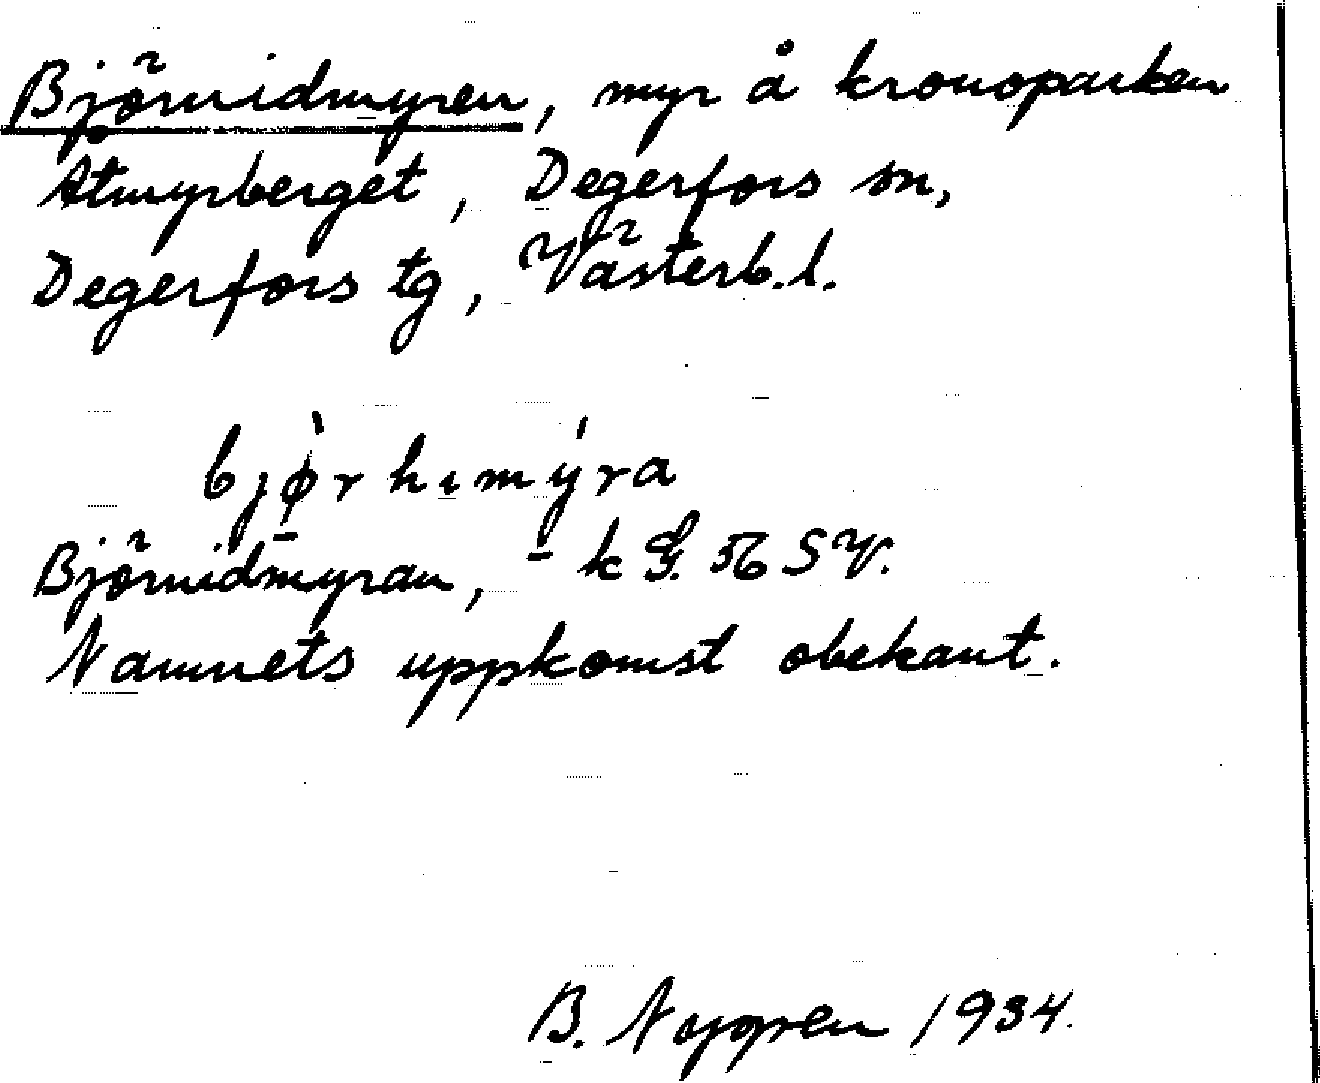 Björnidmyren, myr å kronoparken
Åtmyrberget, Degerfors sn,
Degerfors tg, Västerb. l.
bjø̀rhımýra
Björnidmyran, k G. 56 SV.
Namnets uppkomst obekant.
B. Nygren 1934.